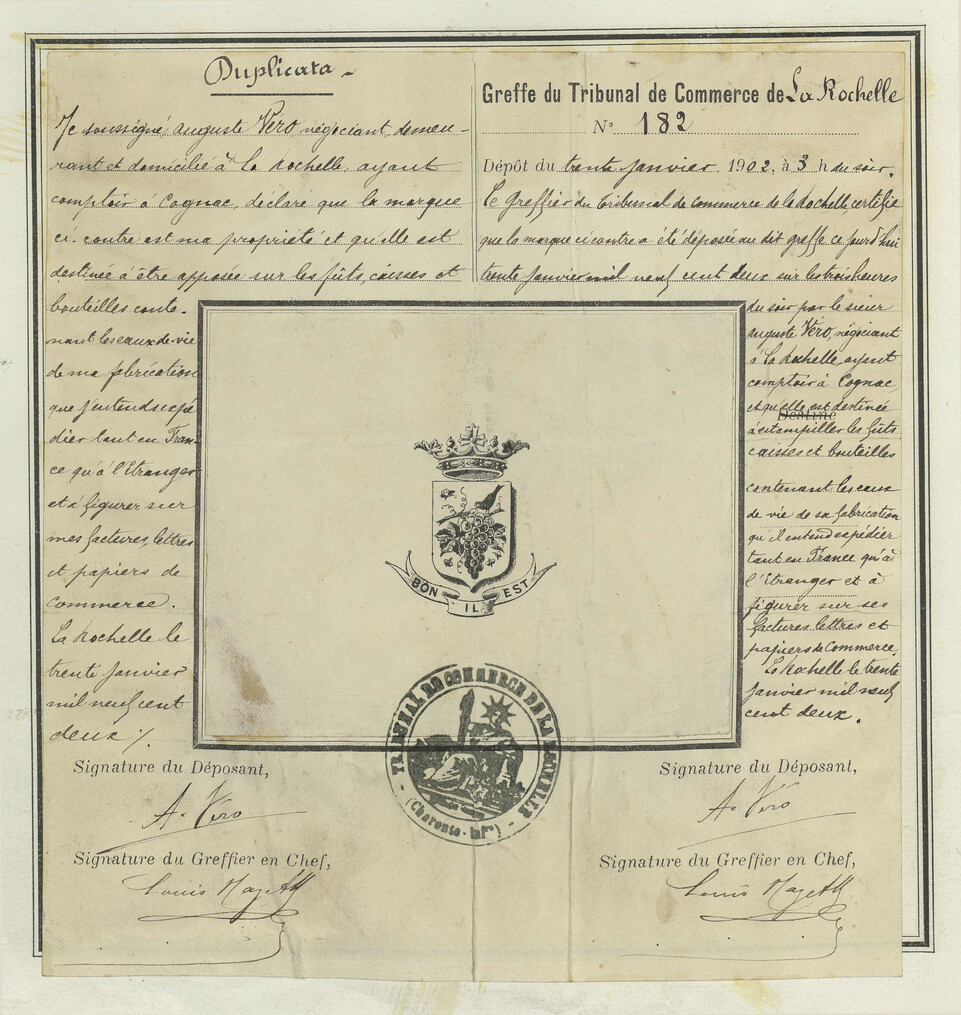 Duplicata
Je soussigné, Auguste Véro, négociant, demeu-
rant et domicilié à La Rochelle, ayant
comptoir à Cognac, déclare que la marque
ci-contre est ma propriété et qu'elle est
destinée à être apposée sur les fûts, caisses et
bouteilles conte-
nant les eaux-de-vie
de ma fabrication
que j'entends expé
dier tant en Fran-
ce qu'à l'Etranger
et à figurer sur
mes factures, lettres
et papiers de
commerce.
La Rochelle le
trente janvier
mil neuf cent
deux %.
Signature du Déposant,
A. Véro
Signature du Greffier en Chef,
Louis
Greffe du Tribunal de Commerce de La Rochelle
N° 182
Dépôt du trente janvier 1902, à 3 h du soir.
Le Greffier du tribunal de commerce de la Rochelle, certifie
que la marque ci contre a été déposée au dit greffe ce jourd'hui
trente janvier mil neuf cent deux sur les trois heures
du soir par le sieur
Auguste Véro, négociant
à La Rochelle, ayant
comptoir à Cognac
et qu'elle est destinée
Destiné
à estampiller les fûts
caisses et bouteilles
contenant les eaux
de vie de sa fabrication
qu'il entend expédier
tant en France qu'à
l'Etranger et à
figurer sur ses
factures lettres et
papiers de Commerce,
La Rochelle le trente
janvier mil neuf
cent deux.
Signature du Déposant,
A. Véro
Signature du Greffier en Chef,
Louis
BON IL EST
TRIBUNAL DE COMMERCE DE LA ROCHELLE
(Charente-Infre)